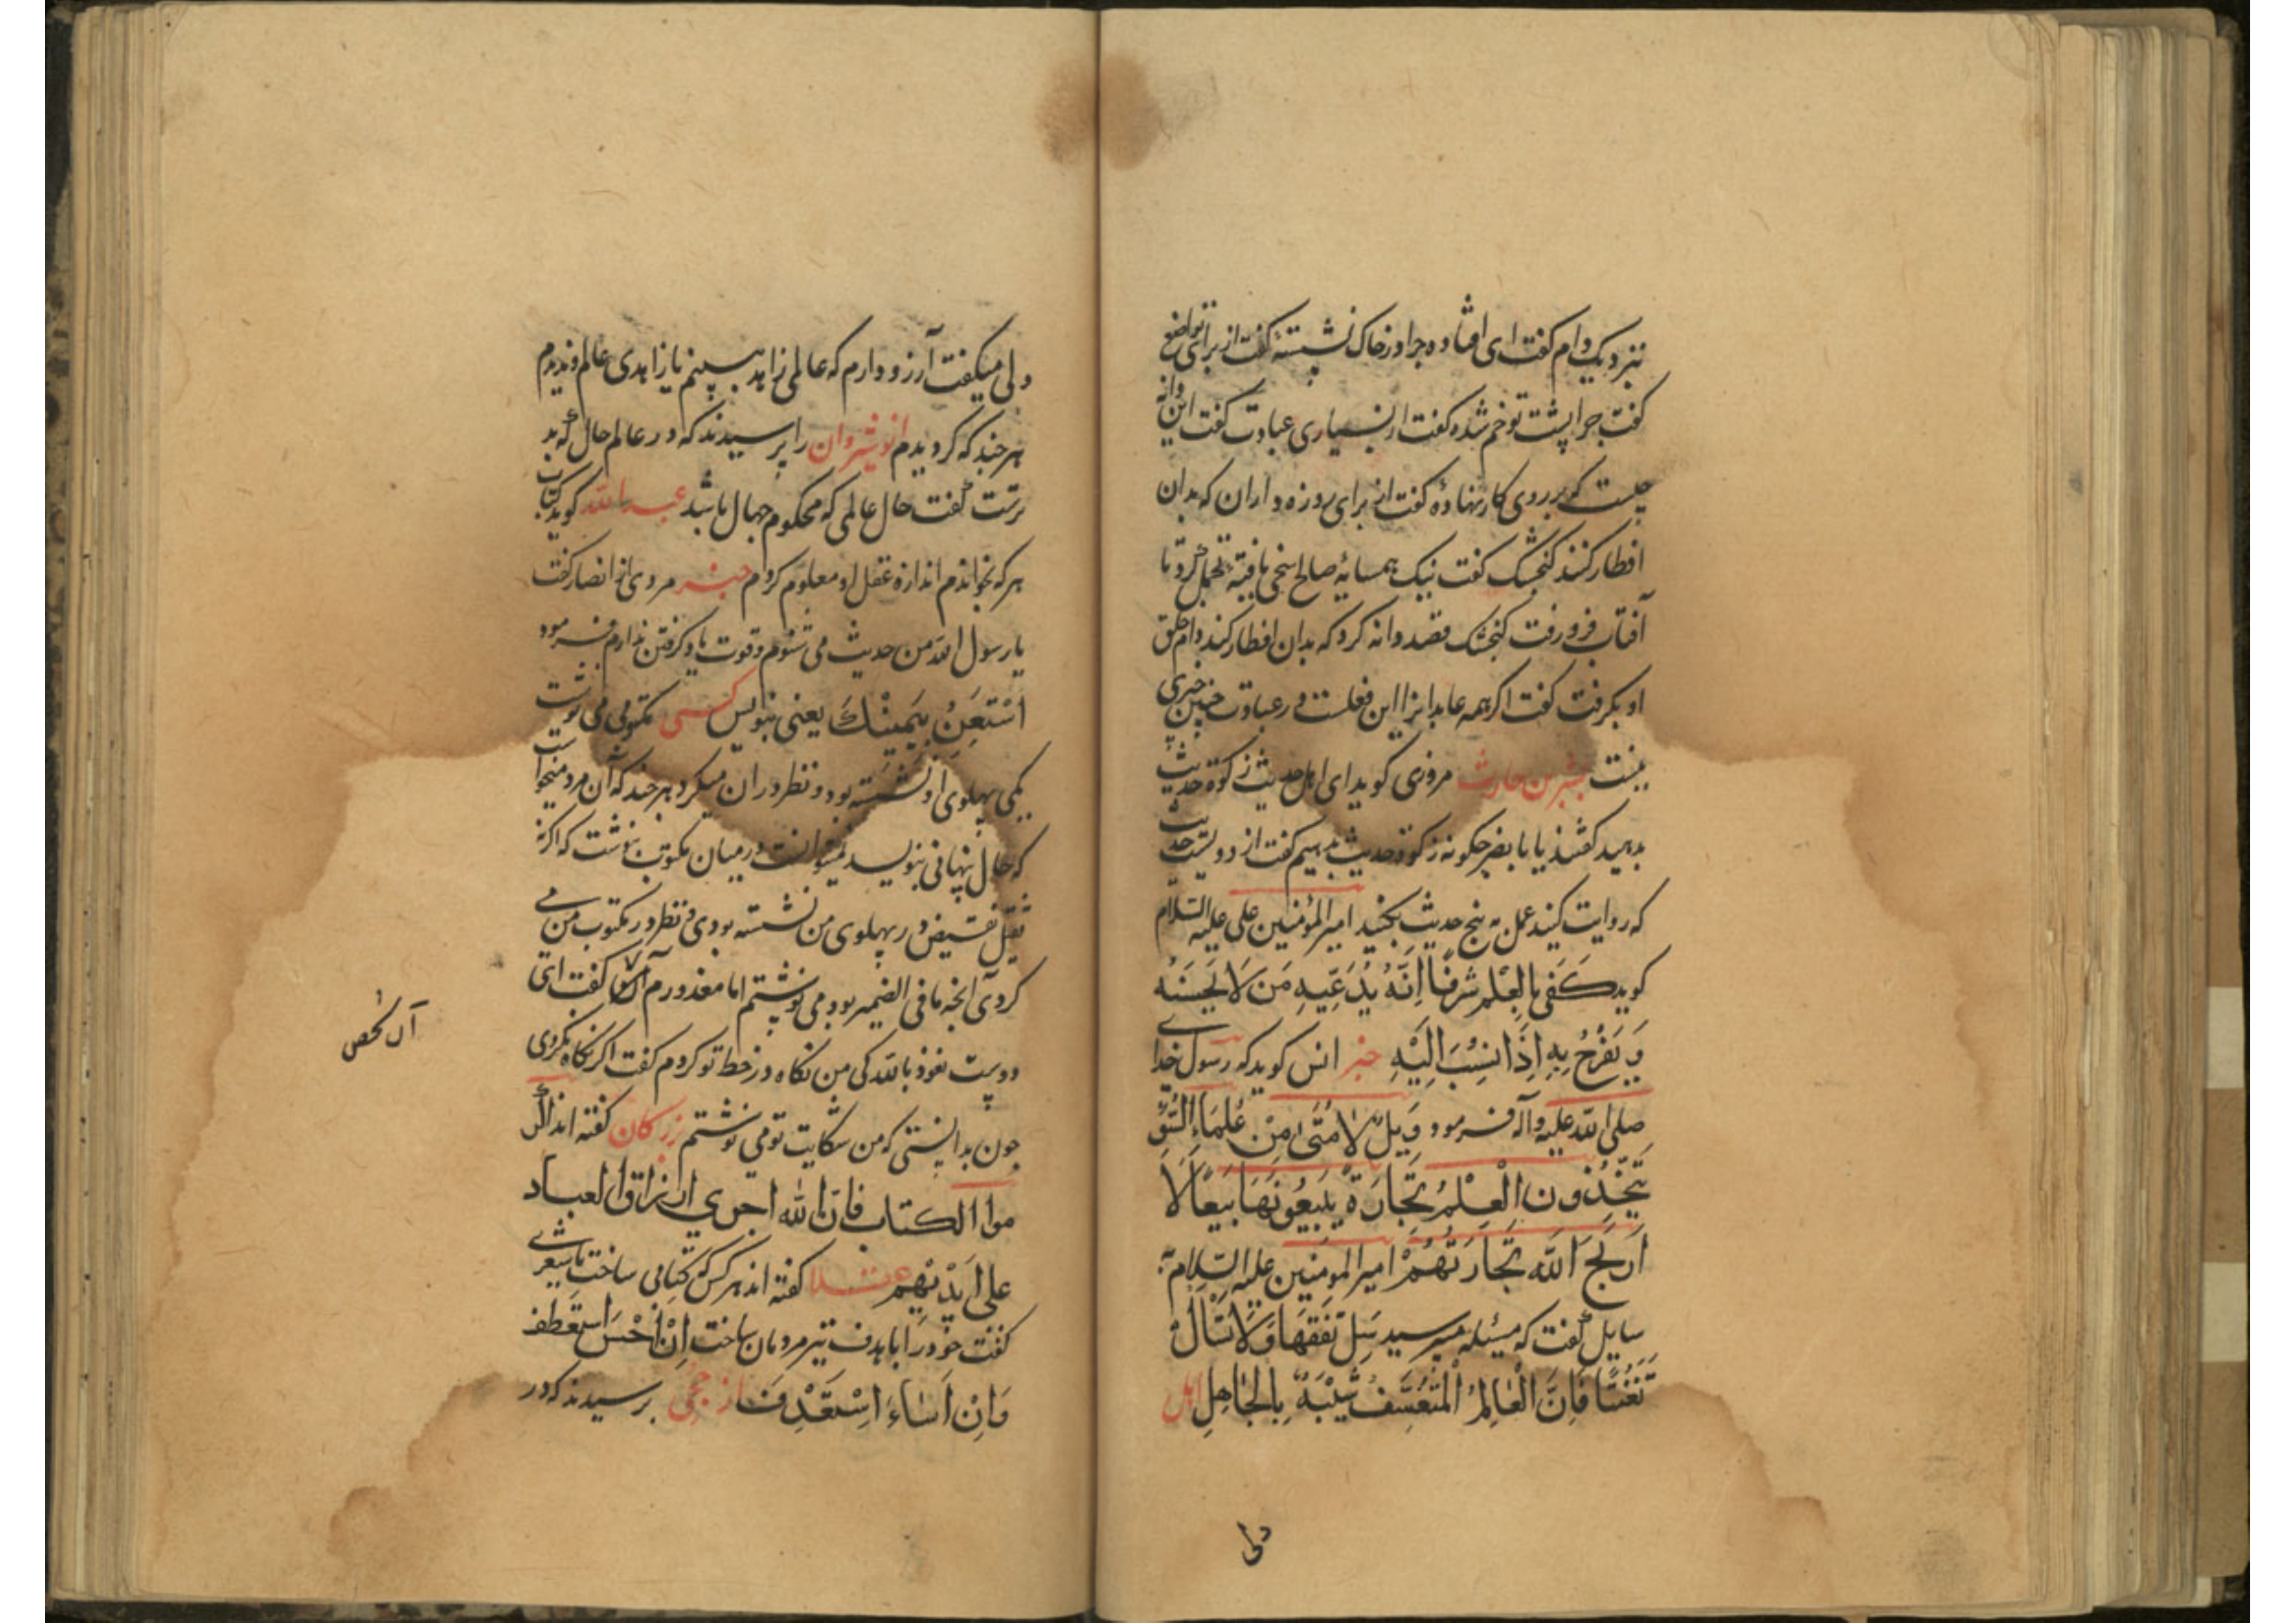 نزدیک دام گفت ای افتاده چرا در خاک نشسته گفت از برای تواضع
گفت چرا پشت تو خم شده گفت از بسیاری عبادت گفت این دانه
چیست که بر روی کار نهادهٔ گفت از برای روزه داران که بدان
افطار کنند کنجشک گفت نیک همسایهٔ صالح سخی یافته تحمل کرد تا
آفتاب فرو رفت کنجشک قصد دانه کرد که بدان افطار کند دام حلق
او بگرفت گفت اگر همه عابدانرا این فعلست در عبادت چنین خیری
نیست بشر بن حارث مروزی گوید ای اهل حدیث زکوة حدیث
بدهید گفتند یا با نصر چگونه زکوة حدیث بدهیم گفت از دویست حدیث
که روایت کنید عمل به پنج حدیث بکنید امیرالمؤمنین علی علیه السلام
گوید كَفَى بِالعِلْمِ شَرَفًا اِنَّهُ يَدَّعِيهِ مَن لَا يُحْسِنُه
وَ يَفْرَحُ بِهِ اِذَا نُسِبَ اِلَيْهِ خبر انس گوید که رسول خدای
صلی الله علیه وآله فرمود وَيلٌ لِامَّتى مِنْ عُلَمَاءِ السُّوْءِ
يَتَّخِذُونَ الْعِلْمَ تِجَارَةً يَبِيعُونَهَا بَيعًا لَا
اَرْبَحَ اللَّه تِجَارَتَهُمْ امیر المومنین علیه السلام به
سایل گفت که مسئله میپرسید سَلْ تَفَقُّهًا وَلَا تَسْأَلْ
تَعَنُّتًا فَاِنَّ الْعَالِمَ الْمُتَعَسِّفَ شَبِيْهٌ بِالْجَاهِلِ اهل
دلی
دلی میگفت آرزو دارم که عالمی زاهد ببینم یا زاهدی عالم و ندیدم
هر چند که گردیدم انوشیروان را پرسیدند که در عالم حال که بد
ترست گفت حال عالمی که محکوم جهال باشد عبدالله گوید کتاب
هر که بخواندم اندازه عقل او معلوم کردم خبر مردی از انصار گفت
یا رسول الله من حدیث می شنوم و قوت یاد گرفتن ندارم فرمود
اسْتَعِنْ بِيَمِيْنِكَ یعنی بنویس کسی مکتوبی می نوشت
یکی پهلوی او نشسته بود و نظر در ان میکرد هر چند که آن مرد میخواست
که حال پنهانی بنویسد نمیتوانست در میان مکتوب بنوشت که اگر نه
ثقیل نقیض در پهلوی من نشسته بودی و نظر در مکتوب من می
کردی آنچه ما فی الضمیر بود می نوشتم اما معذورم گفت ای
دوست نعوذ بالله کی من نگاه در خط تو کردم گفت اگر نگاه نکردی
چون بدانستی که من شکایت تو می نوشتم بزرکان گفته اند اکر
موا الكتاب فان الله اجري ارزاق العباد
على ايديهم عقلا گفته اند هر کس که کتابی ساخت یا شعری
گفت خود را با هدف تیر مردمان ساخت اِنْ اَحْسَنَ اسْتَعْطَفَ
وَاِنْ اَسَاءَ اِسْتَقْذَفَ از جحی پرسیدند که در
آن شخص